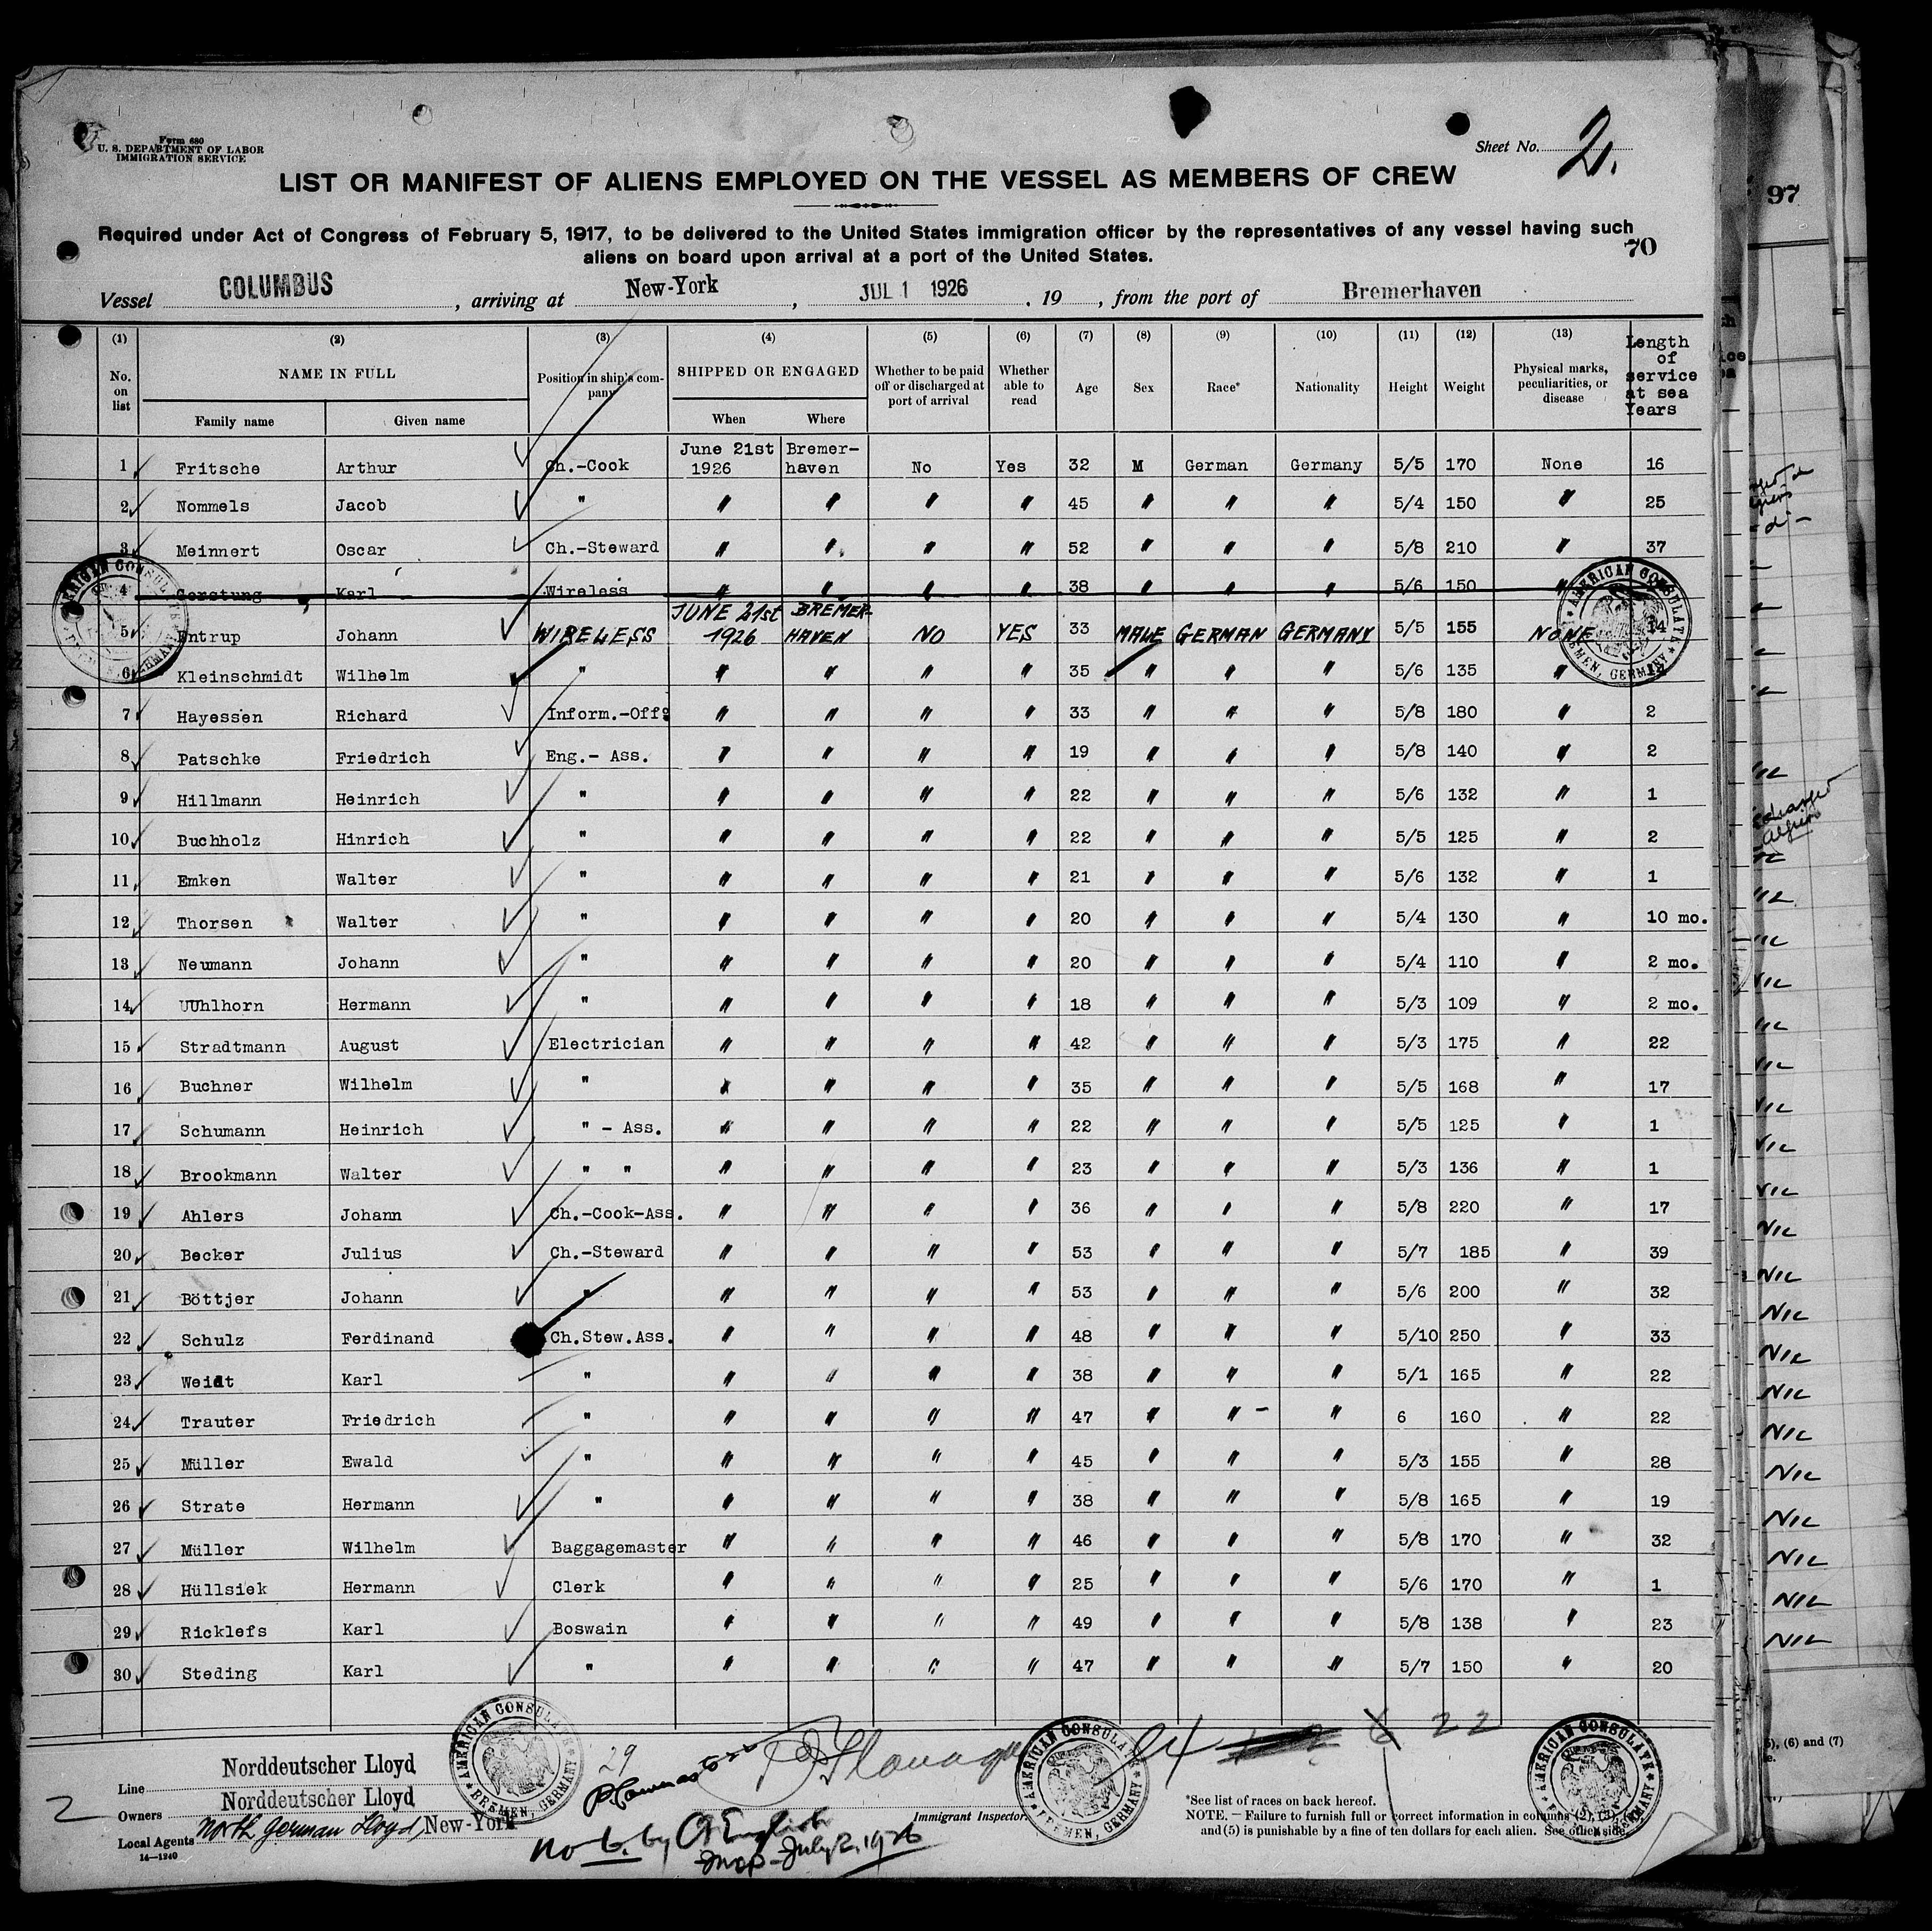 Form 680
U. S. DEPARTMENT OF LABOR
IMMIGRATION SERVICE
Sheet No. 2.
LIST OR MANIFEST OF ALIENS EMPLOYED ON THE VESSEL AS MEMBERS OF CREW
Required under Act of Congress of February 5, 1917, to be delivered to the United States immigration officer by the representatives of any vessel having such
aliens on board upon arrival at a port of the United States.
70
97
Vessel COLUMBUS , arriving at New-York , JUL 1 1926 , 19 , from the port of Bremerhaven
(1) (2) (3) (4) (5) (6) (7) (8) (9) (10) (11) (12) (13)
No. on list NAME IN FULL Family name Given name Position in ship's company SHIPPED OR ENGAGED When Where Whether to be paid off or discharged at port of arrival Whether able to read Age Sex Race* Nationality Height Weight Physical marks, peculiarities, or disease Length of service at sea Years
1 Fritsche Arthur Ch.-Cook June 21st 1926 Bremer-haven No Yes 32 M German Germany 5/5 170 None 16
2 Nommels Jacob " " " " " 45 " " " 5/4 150 " 25
3 Meinnert Oscar Ch.-Steward " " " " 52 " " " 5/8 210 " 37
4 Gerstung Karl Wireless " " " " 38 " " " 5/6 150 "
5 Entrup Johann WIRELESS JUNE 21st 1926 BREMER-HAVEN NO YES 33 MALE GERMAN GERMANY 5/5 155 NONE 14
6 Kleinschmidt Wilhelm " " " " " 35 " " " 5/6 135 "
7 Hayessen Richard Inform.-Off. " " " " 33 " " " 5/8 180 " 2
8 Patschke Friedrich Eng.- Ass. " " " " 19 " " " 5/8 140 " 2
9 Hillmann Heinrich " " " " " 22 " " " 5/6 132 " 1
10 Buchholz Hinrich " " " " " 22 " " " 5/5 125 " 2
11 Emken Walter " " " " " 21 " " " 5/6 132 " 1
12 Thorsen Walter " " " " " 20 " " " 5/4 130 " 10 mo.
13 Neumann Johann " " " " " 20 " " " 5/4 110 " 2 mo.
14 UUhlhorn Hermann " " " " " 18 " " " 5/3 109 " 2 mo.
15 Stradtmann August Electrician " " " " 42 " " " 5/3 175 " 22
16 Buchner Wilhelm " " " " " 35 " " " 5/5 168 " 17
17 Schumann Heinrich " - Ass. " " " " 22 " " " 5/5 125 " 1
18 Brookmann Walter " " " " " " 23 " " " 5/3 136 " 1
19 Ahlers Johann Ch.-Cook-Ass. " " " " 36 " " " 5/8 220 " 17
20 Becker Julius Ch.-Steward " " " " 53 " " " 5/7 185 " 39
21 Böttjer Johann " " " " " 53 " " " 5/6 200 " 32
22 Schulz Ferdinand Ch.Stew.Ass. " " " " 48 " " " 5/10 250 " 33
23 Weidt Karl " " " " " 38 " " " 5/1 165 " 22
24 Trauter Friedrich " " " " " 47 " " " 6 160 " 22
25 Müller Ewald " " " " " 45 " " " 5/3 155 " 28
26 Strate Hermann " " " " " 38 " " " 5/8 165 " 19
27 Müller Wilhelm Baggagemaster " " " " 46 " " " 5/8 170 " 32
28 Hüllsiek Hermann Clerk " " " " 25 " " " 5/6 170 " 1
29 Ricklefs Karl Boswain " " " " 49 " " " 5/8 138 " 23
30 Steding Karl " " " " " 47 " " " 5/7 150 " 20
AMERICAN CONSULATE BREMEN, GERMANY
29
22
2
Line Norddeutscher Lloyd
Owners Norddeutscher Lloyd
Local Agents North German Lloyd, New-York
14—1240
Immigrant Inspector.
No 6. by English
Insp- July 2, 1926
*See list of races on back hereof.
NOTE. — Failure to furnish full or correct information in columns (2), (3),
and (5) is punishable by a fine of ten dollars for each alien. See other side.